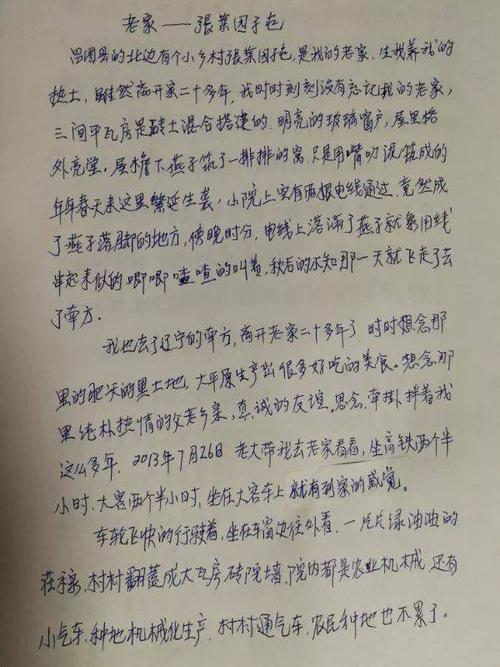 老家——張菜园子屯
昌图县的北边有个小乡村張菜园子屯,是我的老家、生我养我的
热土,雖然离开家二十多年,我时时刻刻没有忘记我的老家,
三间平瓦房是砖土混合搭建的.明亮的玻璃窗户,屋里格
外亮堂。屋檐下燕子筑了一排排的窩,只是用嘴叨泥筑成的
年年春天来这里繁延生养,小院上空有两根电线通过.竟然成
了燕子落脚的地方,傍晚时分,电线上落满了燕子就象用线
串起来似的唧唧喳喳的叫着,秋后的不知那一天就飞走了去
了南方.
我也去了辽宁的南方,离开老家二十多年了.时时想念那
里的肥沃的黑土地,大平原生产出很多好吃的美食。想念那
里纯朴热情的父老乡亲,真诚的友谊。思念,牵掛拌着我
这么多年.2013年7月26日老大带我去老家看看,坐高铁两个半
小时.大客两个半小时,坐在大客车上就有到家的感觉。
车轮飞快的行驶着,坐在车窗边往外看.一片片绿油油的
莊稼.村村翻蓋成大瓦房砖院墙,院内都是农业机械.还有
小气车,种地机械化生产.村村通气车,农民种地也不累了。